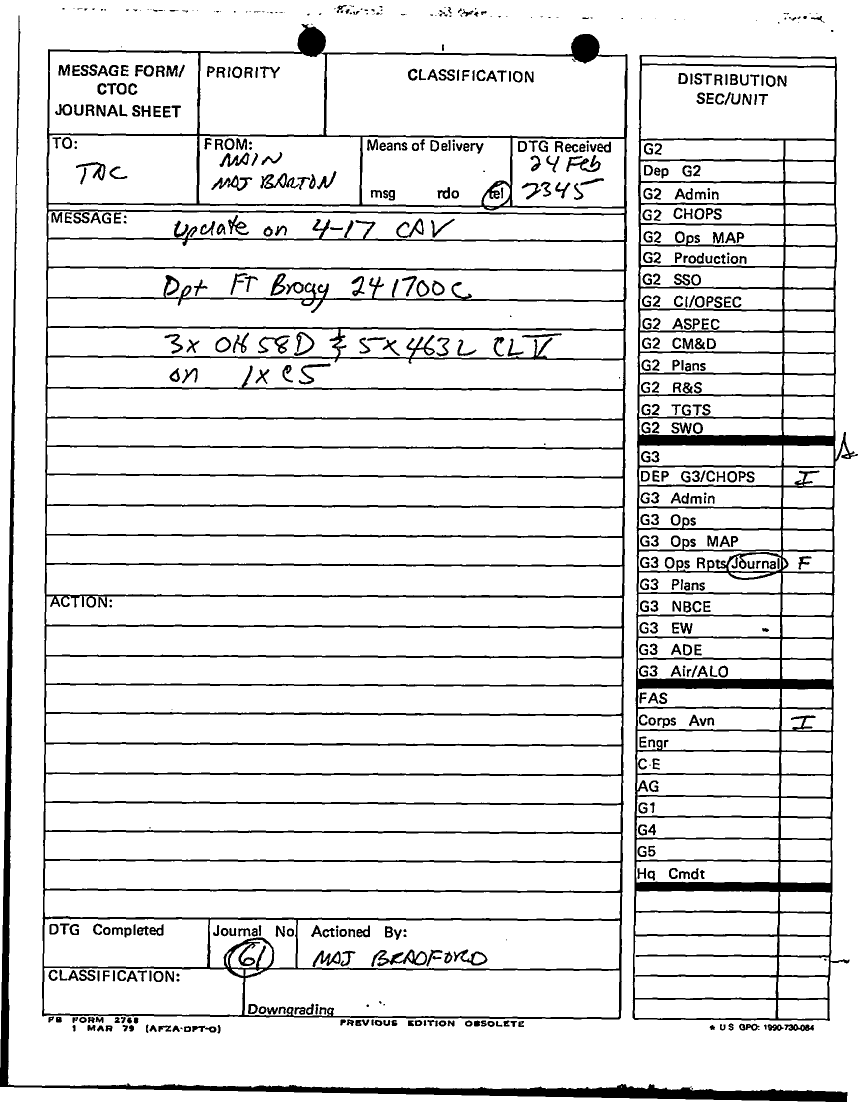 MESSAGE FORM/
CTOC
JOURNAL SHEET
PRIORITY
CLASSIFICATION
TO:
TAC
FROM:
MAIN
MAJ BARTON
Means of Delivery
msg rdo tel
DTG Received
24 Feb
2345
MESSAGE:
Update on 4-17 CAV
Dpt FT Bragg 241700C
3x OH58D & 5x463L CL V
on 1x C5
ACTION:
DTG Completed
Journal No.
61
Actioned By:
MAJ BRADFORD
CLASSIFICATION:
Downgrading
FB FORM 2768
1 MAR 79 (AFZA-DPT-O)
PREVIOUS EDITION OBSOLETE
DISTRIBUTION
SEC/UNIT
G2
Dep G2
G2 Admin
G2 CHOPS
G2 Ops MAP
G2 Production
G2 SSO
G2 CI/OPSEC
G2 ASPEC
G2 CM&D
G2 Plans
G2 R&S
G2 TGTS
G2 SWO
G3
DEP G3/CHOPS I
G3 Admin
G3 Ops
G3 Ops MAP
G3 Ops Rpts Journal F
G3 Plans
G3 NBCE
G3 EW
G3 ADE
G3 Air/ALO
FAS
Corps Avn I
Engr
C-E
AG
G1
G4
G5
Hq Cmdt
* U S GPO: 1990-730-084